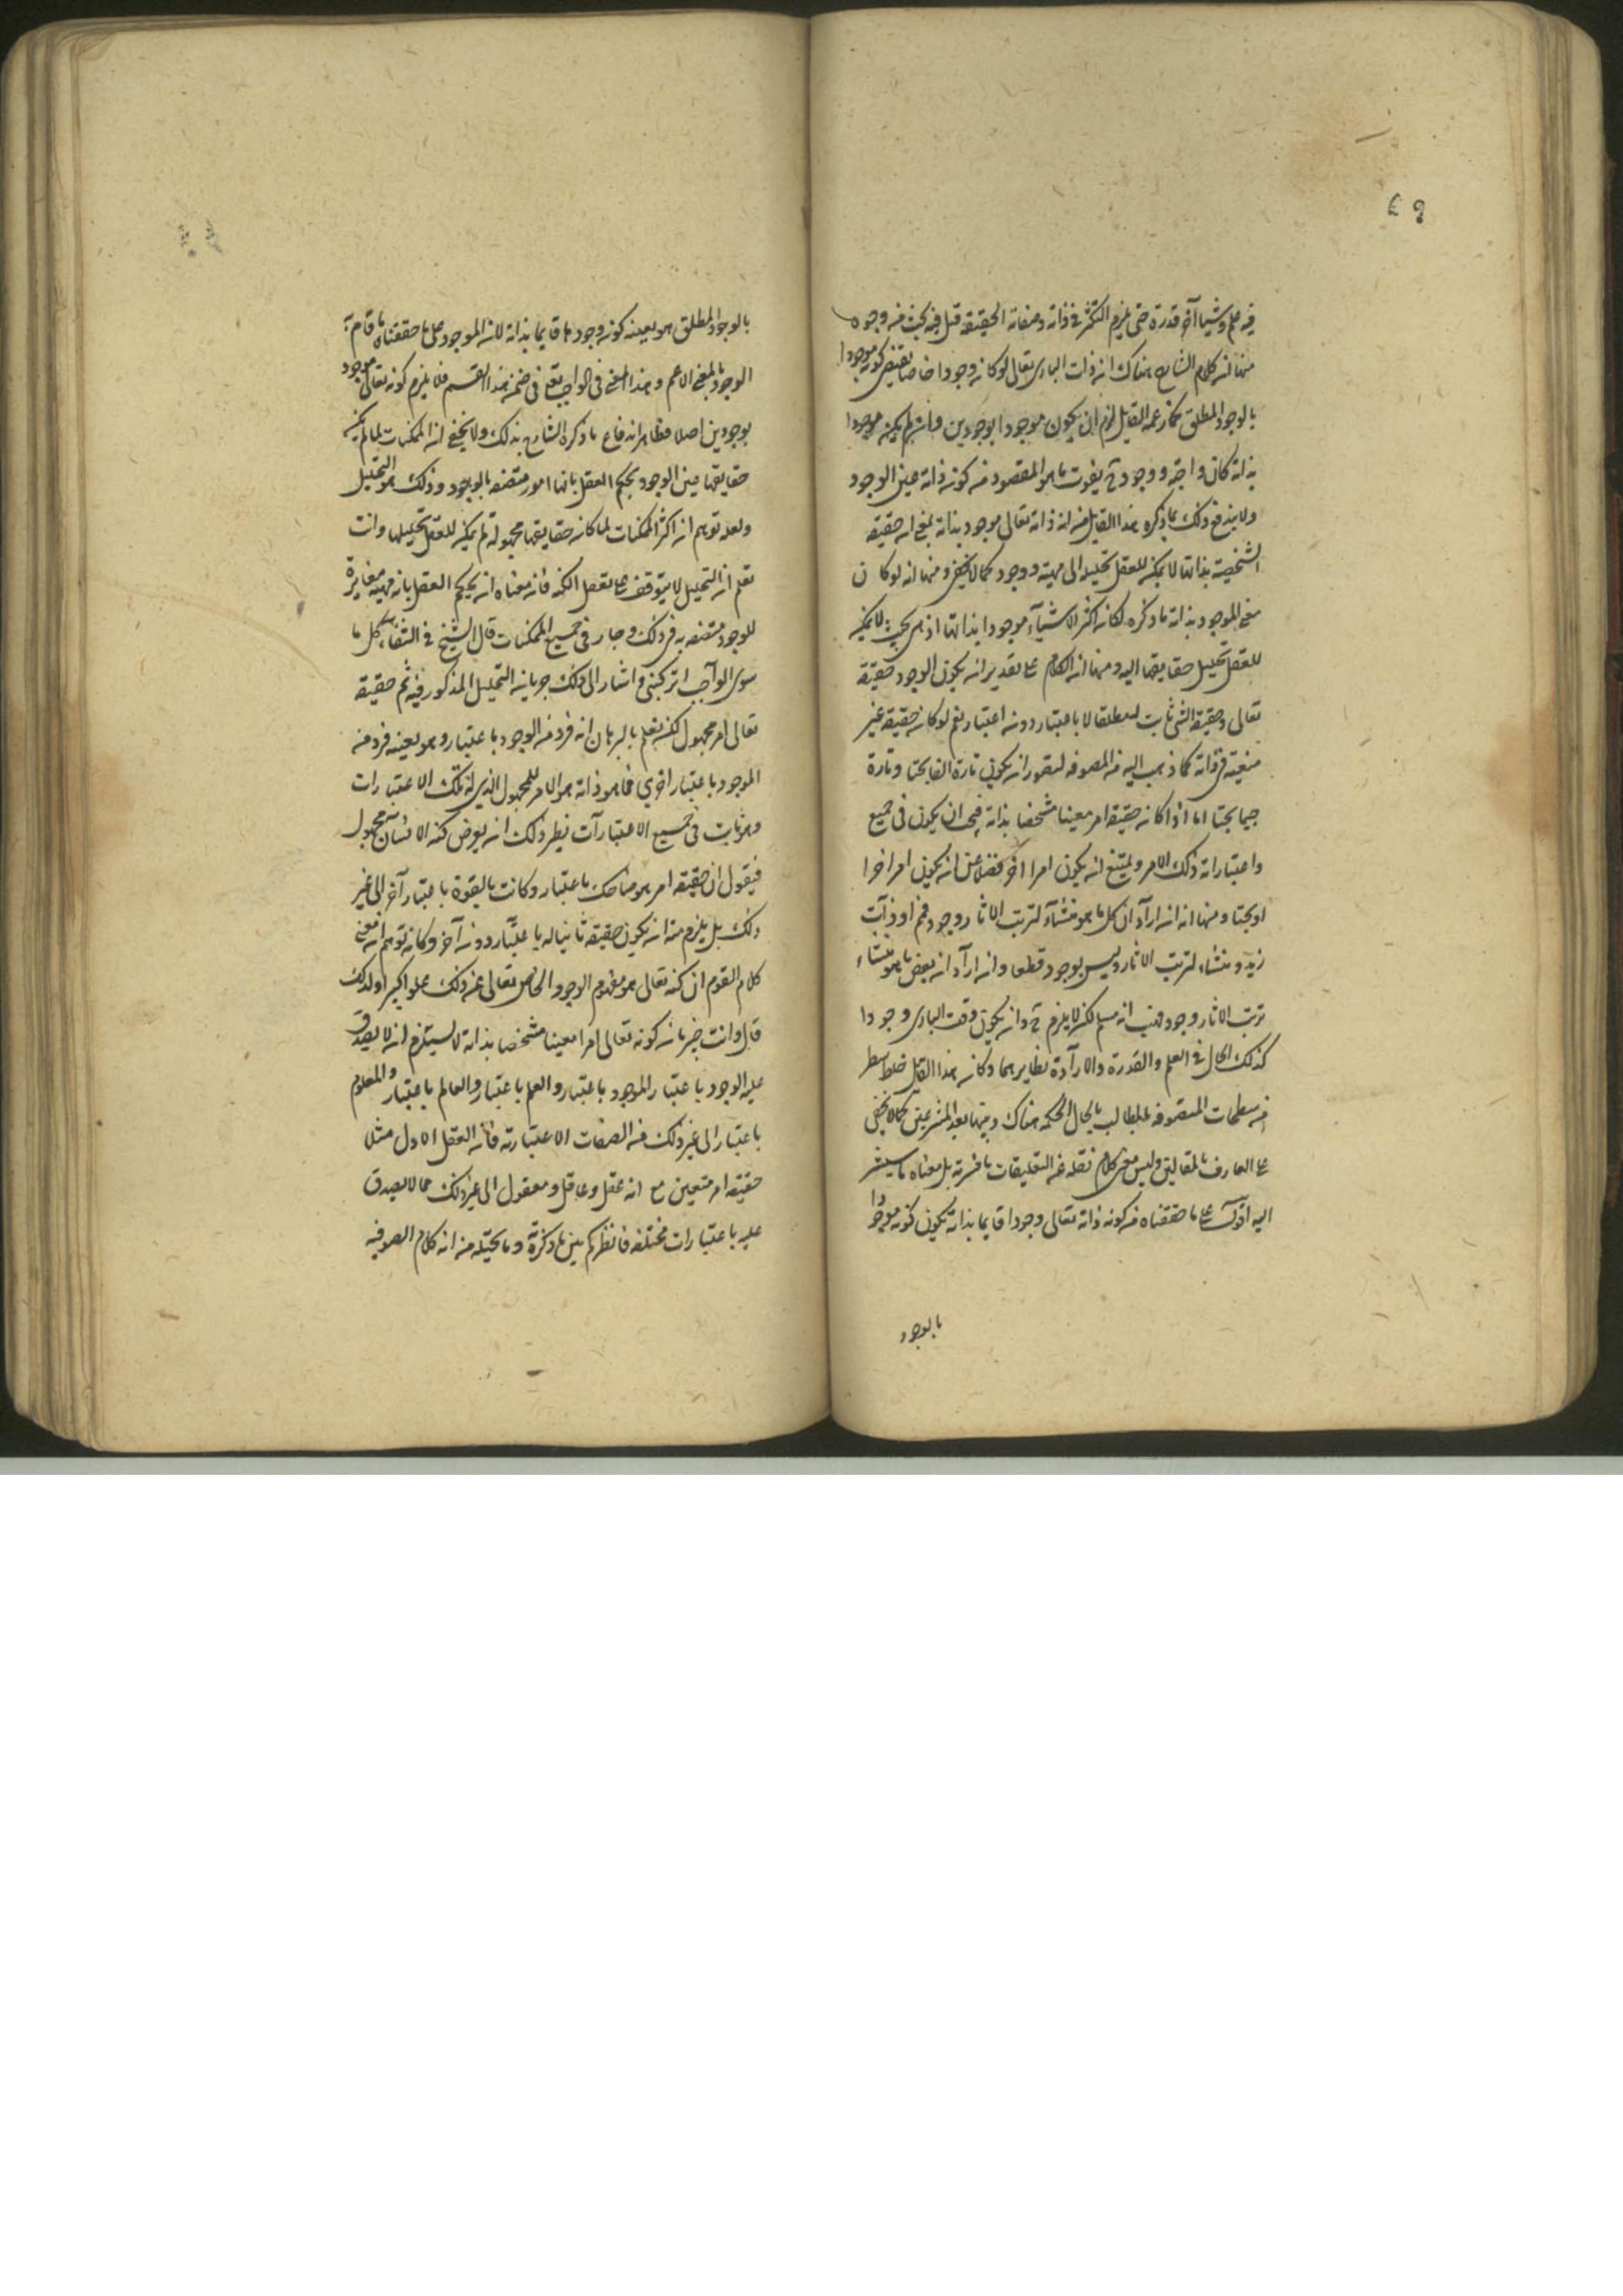 ٤٩
فيه علم وشيئا آخر قدرة حتى يلزم التكثر في ذاته وصفاته الحقيقة قيل فيه بحث من وجوه
منها ان كلام الشارح هناك ان ذات البارى تعالى لو كان وجودا خاصا يقتضى كونه موجودا
بالوجود المطلق كما زعمه القايل لزم ان يكون موجودا بوجودين وان لم يكن موجودا
بذاته كان واجبه ووجوده ح يفوت ما هو المقصود من كونه ذاته عين الوجود
ولا يندفع ذلك بما ذكره هذا القايل من ان ذاته تعالى موجود بذاته بمعنى ان حقيقة
الشخصية بذاتها لا يمكن للعقل تحليله الى مهية ووجود كما لا يخفى ومنها انه لو كان
معنى الموجود بذاته ما ذكره لكان اكثر الاشياء موجودا بذاتها اذ هى بحيث لا يمكن
للعقل تحليل حقايقها اليه ومنها ان الكلام على تقدير ان يكون الوجود حقيقة
تعالى وحقيقة الشئ ثابت له مطلقا لا باعتبار دون اعتبار نعم لو كان حقيقة غير
متعينة فى ذاته كما ذهب اليه من المصوفه لتصور ان يكون تارة الفا بحتا وتارة
جيما بحتا اما اذا كان حقيقة امر معينا مشخصا بذاته فيجب ان يكون فى جميع
واعتباراته ذلك الامر ويمتنع ان يكون امرا اخر فضلا عن ان يكون امرا اخرا
او بحتا ومنها انه ان اراد ان كل ما هو منشاء لترتب الاثار وجود فمم او ذات
زيد ومنشاء لترتب الاثار وليس بوجود قطعا وان اراد ان بعض ما هو منشاء
ترتب الاثار وجود فهب انه مسلم لكن لا يلزم ح ان يكون وقت البارى وجودا
كذلك الحال فى العلم والقدرة والارادة نظايرهما وكان هذا القايل خلط سطر
من سطحات المتصوفه بمطالب بالحال الحكمه هناك وبينها بعد المشرقين كما لا يخفى
على العارف بالمقالتين وليس معنى كلام نقله عن التعليقات ما فسر به بل معناه ما سيشير
اليه اقول على ما حققناه من كونه ذاته تعالى وجودا قايما بذاته يكون كونه موجودا
بالوجود
بالوجود المطلق هو بعينه كونه وجودا قايما بذاته لان الموجود على ما حققناه ما قام به
الوجود بالمعنى الاعم وهذا المعنى فى الواجب تعالى فى ضمن هذا القسم فلا يلزم كونه تعالى موجود
بوجودين اصلا فظاهر اندفاع ما ذكره الشارح بذلك ولا يخفى ان الممكنات لما لم يكن
حقايقها عين الوجود يحكم العقل بانها امور متصفه بالوجود وذلك هو التحليل
ولعله توهم ان اكثر الممكنات لما كان حقايقها مجهولة لم يمكن للعقل تحليلها وانت
تعلم ان التحليل لا يتوقف على تعقل الكنه فان معناه ان يحكم العقل بانه مهية مغايرة
للوجود متصفه به وذلك جار فى جميع الممكنات قال الشيخ فى الشفاء كل ما
سوى الواجب تركيبى واشار الى ذلك جريان التحليل المذكور فيه ثم حقيقة
تعالى امر مجهول لكن يعلم بالبرهان انه فرد من الوجود باعتبار وهو بعينه فرد من
الموجود باعتبار اخرى فما هو ذاته هو الامر المجهول الذى له تلك الاعتبارات
وهو ثابت فى جميع الاعتبارات نظير ذلك ان يعرض كنه الانسان مجهول
فيقول ان حقيقة امر هو ضاحك باعتبار وكانت بالقوة باعتبار آخر الى غير
ذلك بل يلزم منه ان يكون حقيقة ثانيا له باعتبار دون آخر وكانه توهم ان معنى
كلام القوم ان كنه تعالى هو مفهوم الوجود الخاص تعالى عن ذلك علوا كبيرا ولذلك
قال وانت خبير بان كونه تعالى امرا معينا مشخصا بذاته لا يستلزم ان لا يصدق
عليه الوجود باعتبار والموجود باعتبار والعلم باعتبار والعالم باعتبار والمعلوم
باعتبار الى غير ذلك من الصفات الاعتبارية فان العقل الاول مثلا
حقيقة امر متعين مع انه عقل وعاقل ومعقول الى غير ذلك مما لا يصدق
عليه باعتبارات مختلفه فانظر كم بين ما ذكره وما تخيله من انه كلام الصوفيه